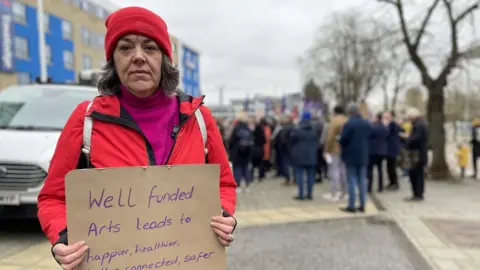 Well funded
Arts leads to
happier, healthier,
connected, safer